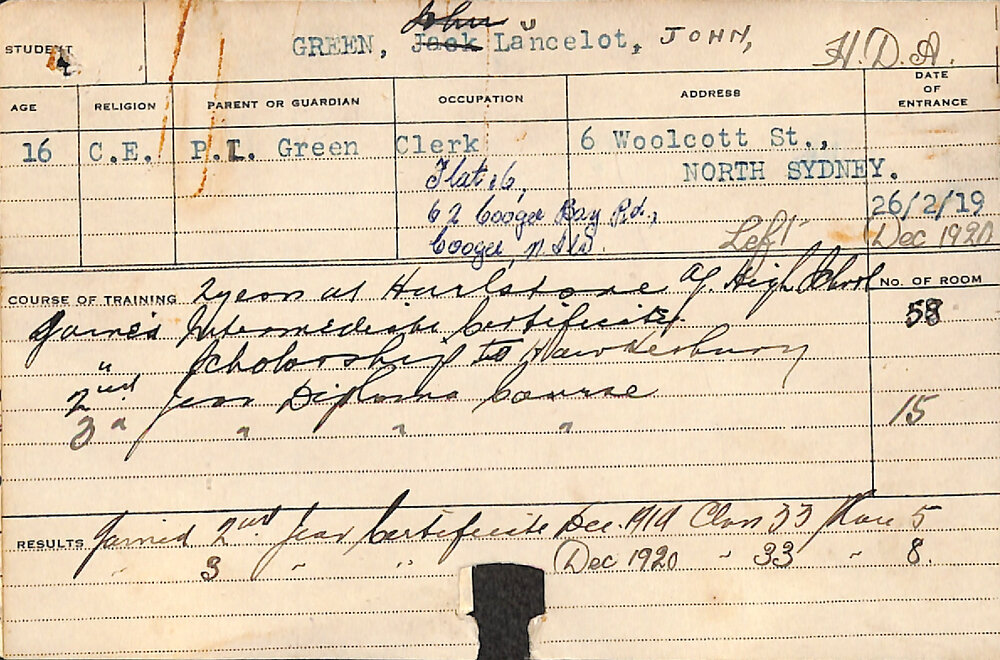 John
STUDENT GREEN, Jack Lancelot, JOHN, H.D.A.
AGE RELIGION PARENT OR GUARDIAN OCCUPATION ADDRESS DATE OF ENTRANCE
16 C.E. P.L. Green Clerk 6 Woolcott St.,
NORTH SYDNEY.
Flat 6,
62 Coogee Bay Rd., 26/2/19
Coogee, N.S.W. Left Dec 1920
COURSE OF TRAINING 2 years at Hurlstone Ag. High School NO. OF ROOM
Gained Intermediate Certificate 58
" Scholarship to Hawkesbury
2nd Year Diploma Course
3 " " " " 15
RESULTS Gained 2nd Year Certificate Dec. 1919 Class 33 Place 5
" 3 " " Dec 1920 " 33 " 8.